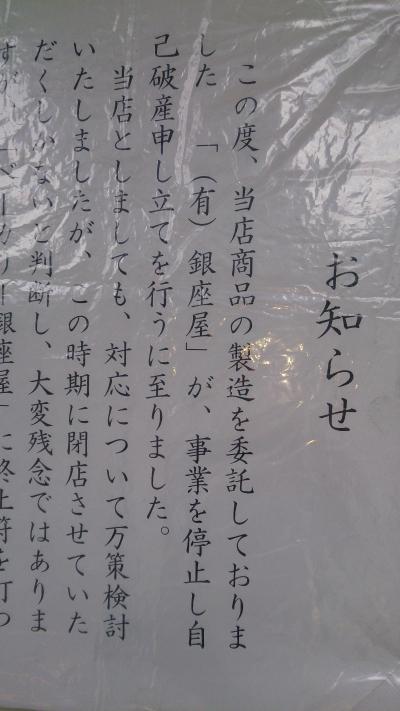 お知らせ
この度、当店商品の製造を委託しておりま
した「（有）銀座屋」が、事業を停止し自
己破産申し立てを行うに至りました。
当店としましても、対応について万策検討
いたしましたが、この時期に閉店させていた
だくしかないと判断し、大変残念ではありま
すが、「ベーカリー銀座屋」に終止符を打つ